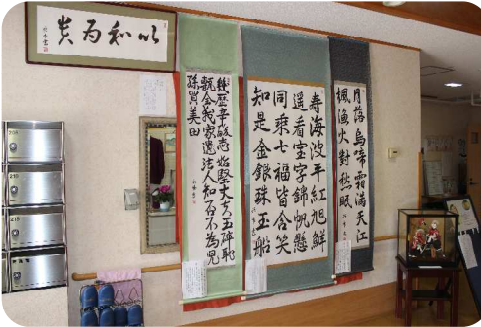 以和為貴
月落烏啼霜滿天江
楓漁火對愁眠
寿海波平紅旭鮮
遥看宝字錦帆懸
同乗七福皆含笑
知是金銀珠玉船
幾歴辛酸志始堅丈夫玉碎恥
甎全我家遺法人知否不為児
孫買美田